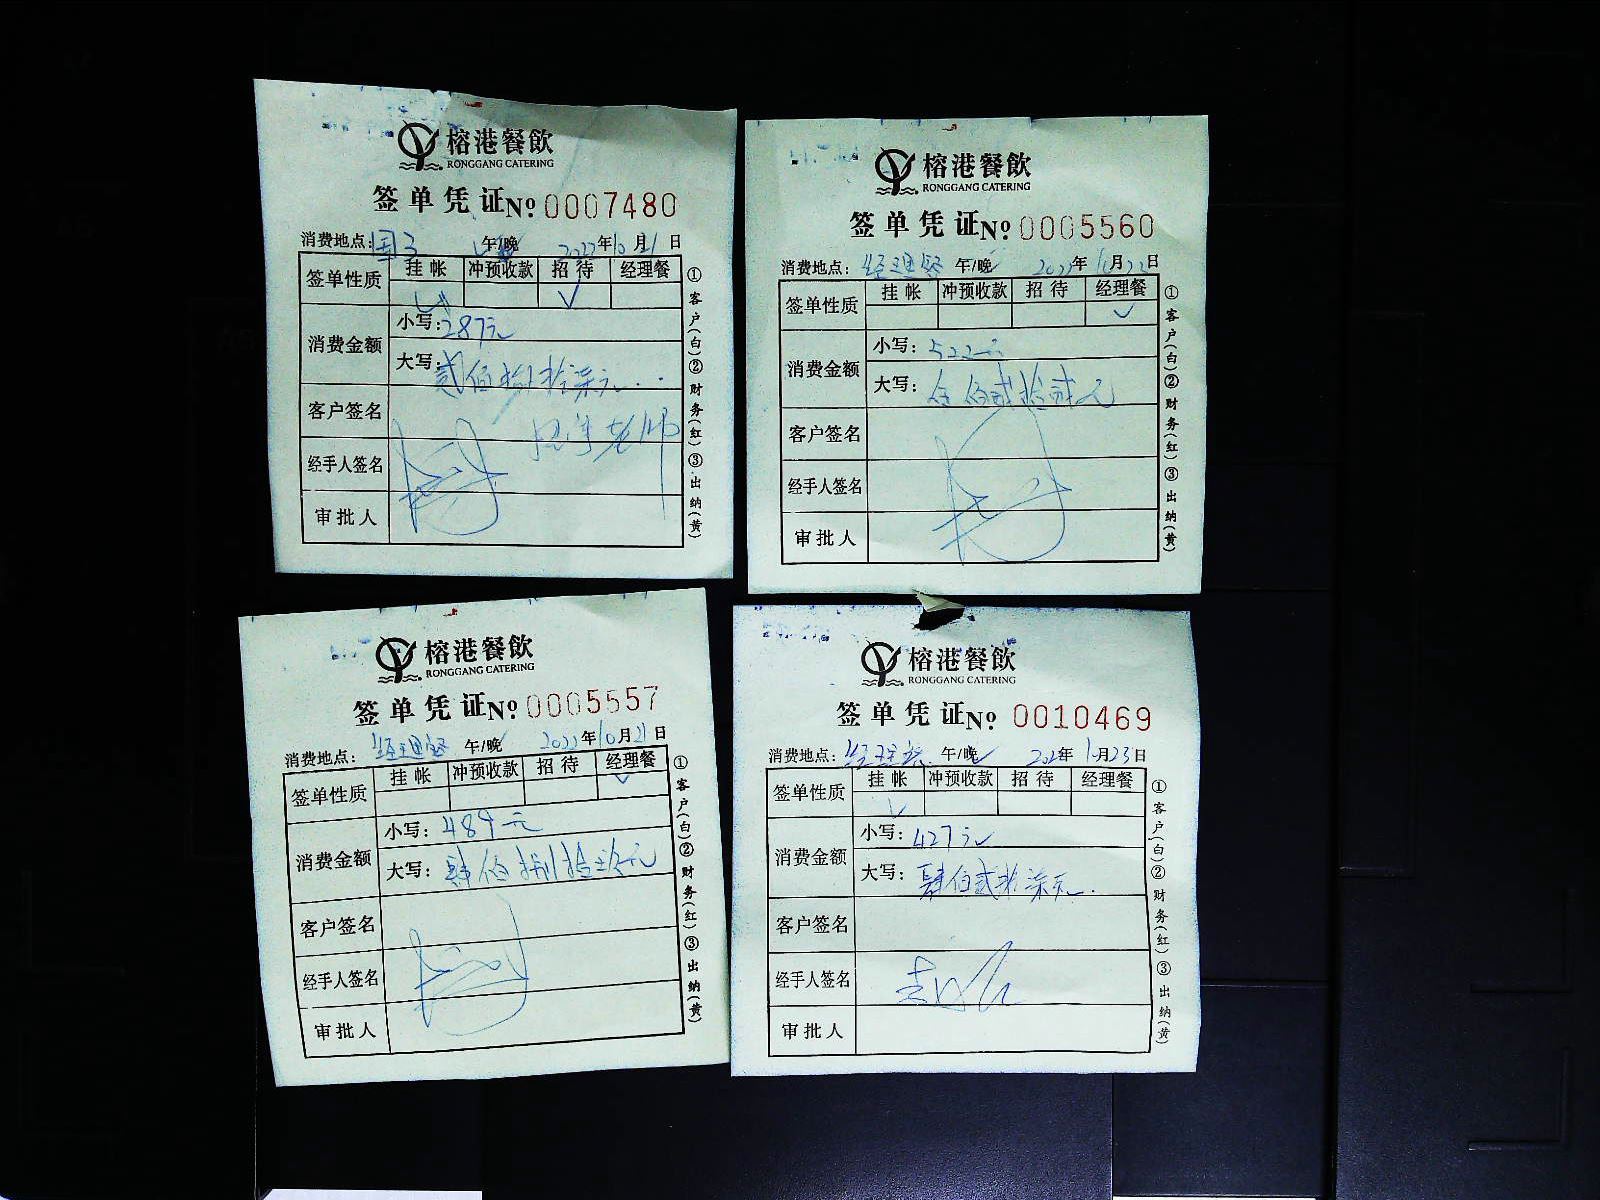 榕港餐飲
RONGGANG CATERING
签单凭证 No 0007480
消费地点: 国3 午/晚 2022年10月21日
签单性质 挂帐 冲预收款 招待 经理餐
消费金额
小写: 287元
大写: 贰佰捌拾柒元
客户签名
经手人签名
审批人
①客户(白)②财务(红)③出纳(黄)
榕港餐飲
RONGGANG CATERING
签单凭证 No 0005560
消费地点: 经理餐 午/晚 2022年10月22日
签单性质 挂帐 冲预收款 招待 经理餐
消费金额
小写: 522元
大写: 伍佰贰拾贰元
客户签名
经手人签名
审批人
①客户(白)②财务(红)③出纳(黄)
榕港餐飲
RONGGANG CATERING
签单凭证 No 0005557
消费地点: 经理餐 午/晚 2022年10月21日
签单性质 挂帐 冲预收款 招待 经理餐
消费金额
小写: 484元
大写: 肆佰捌拾元
客户签名
经手人签名
审批人
①客户(白)②财务(红)③出纳(黄)
榕港餐飲
RONGGANG CATERING
签单凭证 No 0010469
消费地点: 经理餐 午/晚 202年10月23日
签单性质 挂帐 冲预收款 招待 经理餐
消费金额
小写: 427元
大写: 肆佰贰拾柒元
客户签名
经手人签名
审批人
①客户(白)②财务(红)③出纳(黄)